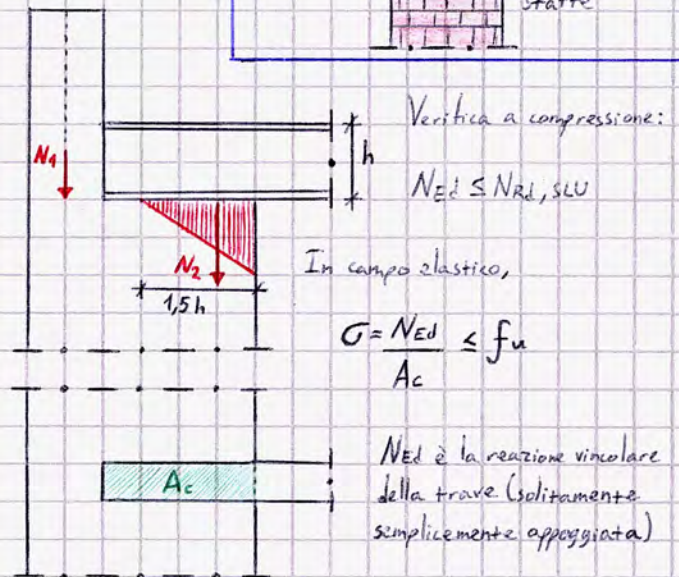 staffe
Verifica a compressione:
N₁
h
N_Ed ≤ N_Rd, SLU
N₂
In campo elastico,
1,5h
σ = N_Ed / A_c ≤ f_u
N_Ed è la reazione vincolare
A_c
della trave (solitamente
semplicemente appoggiata)